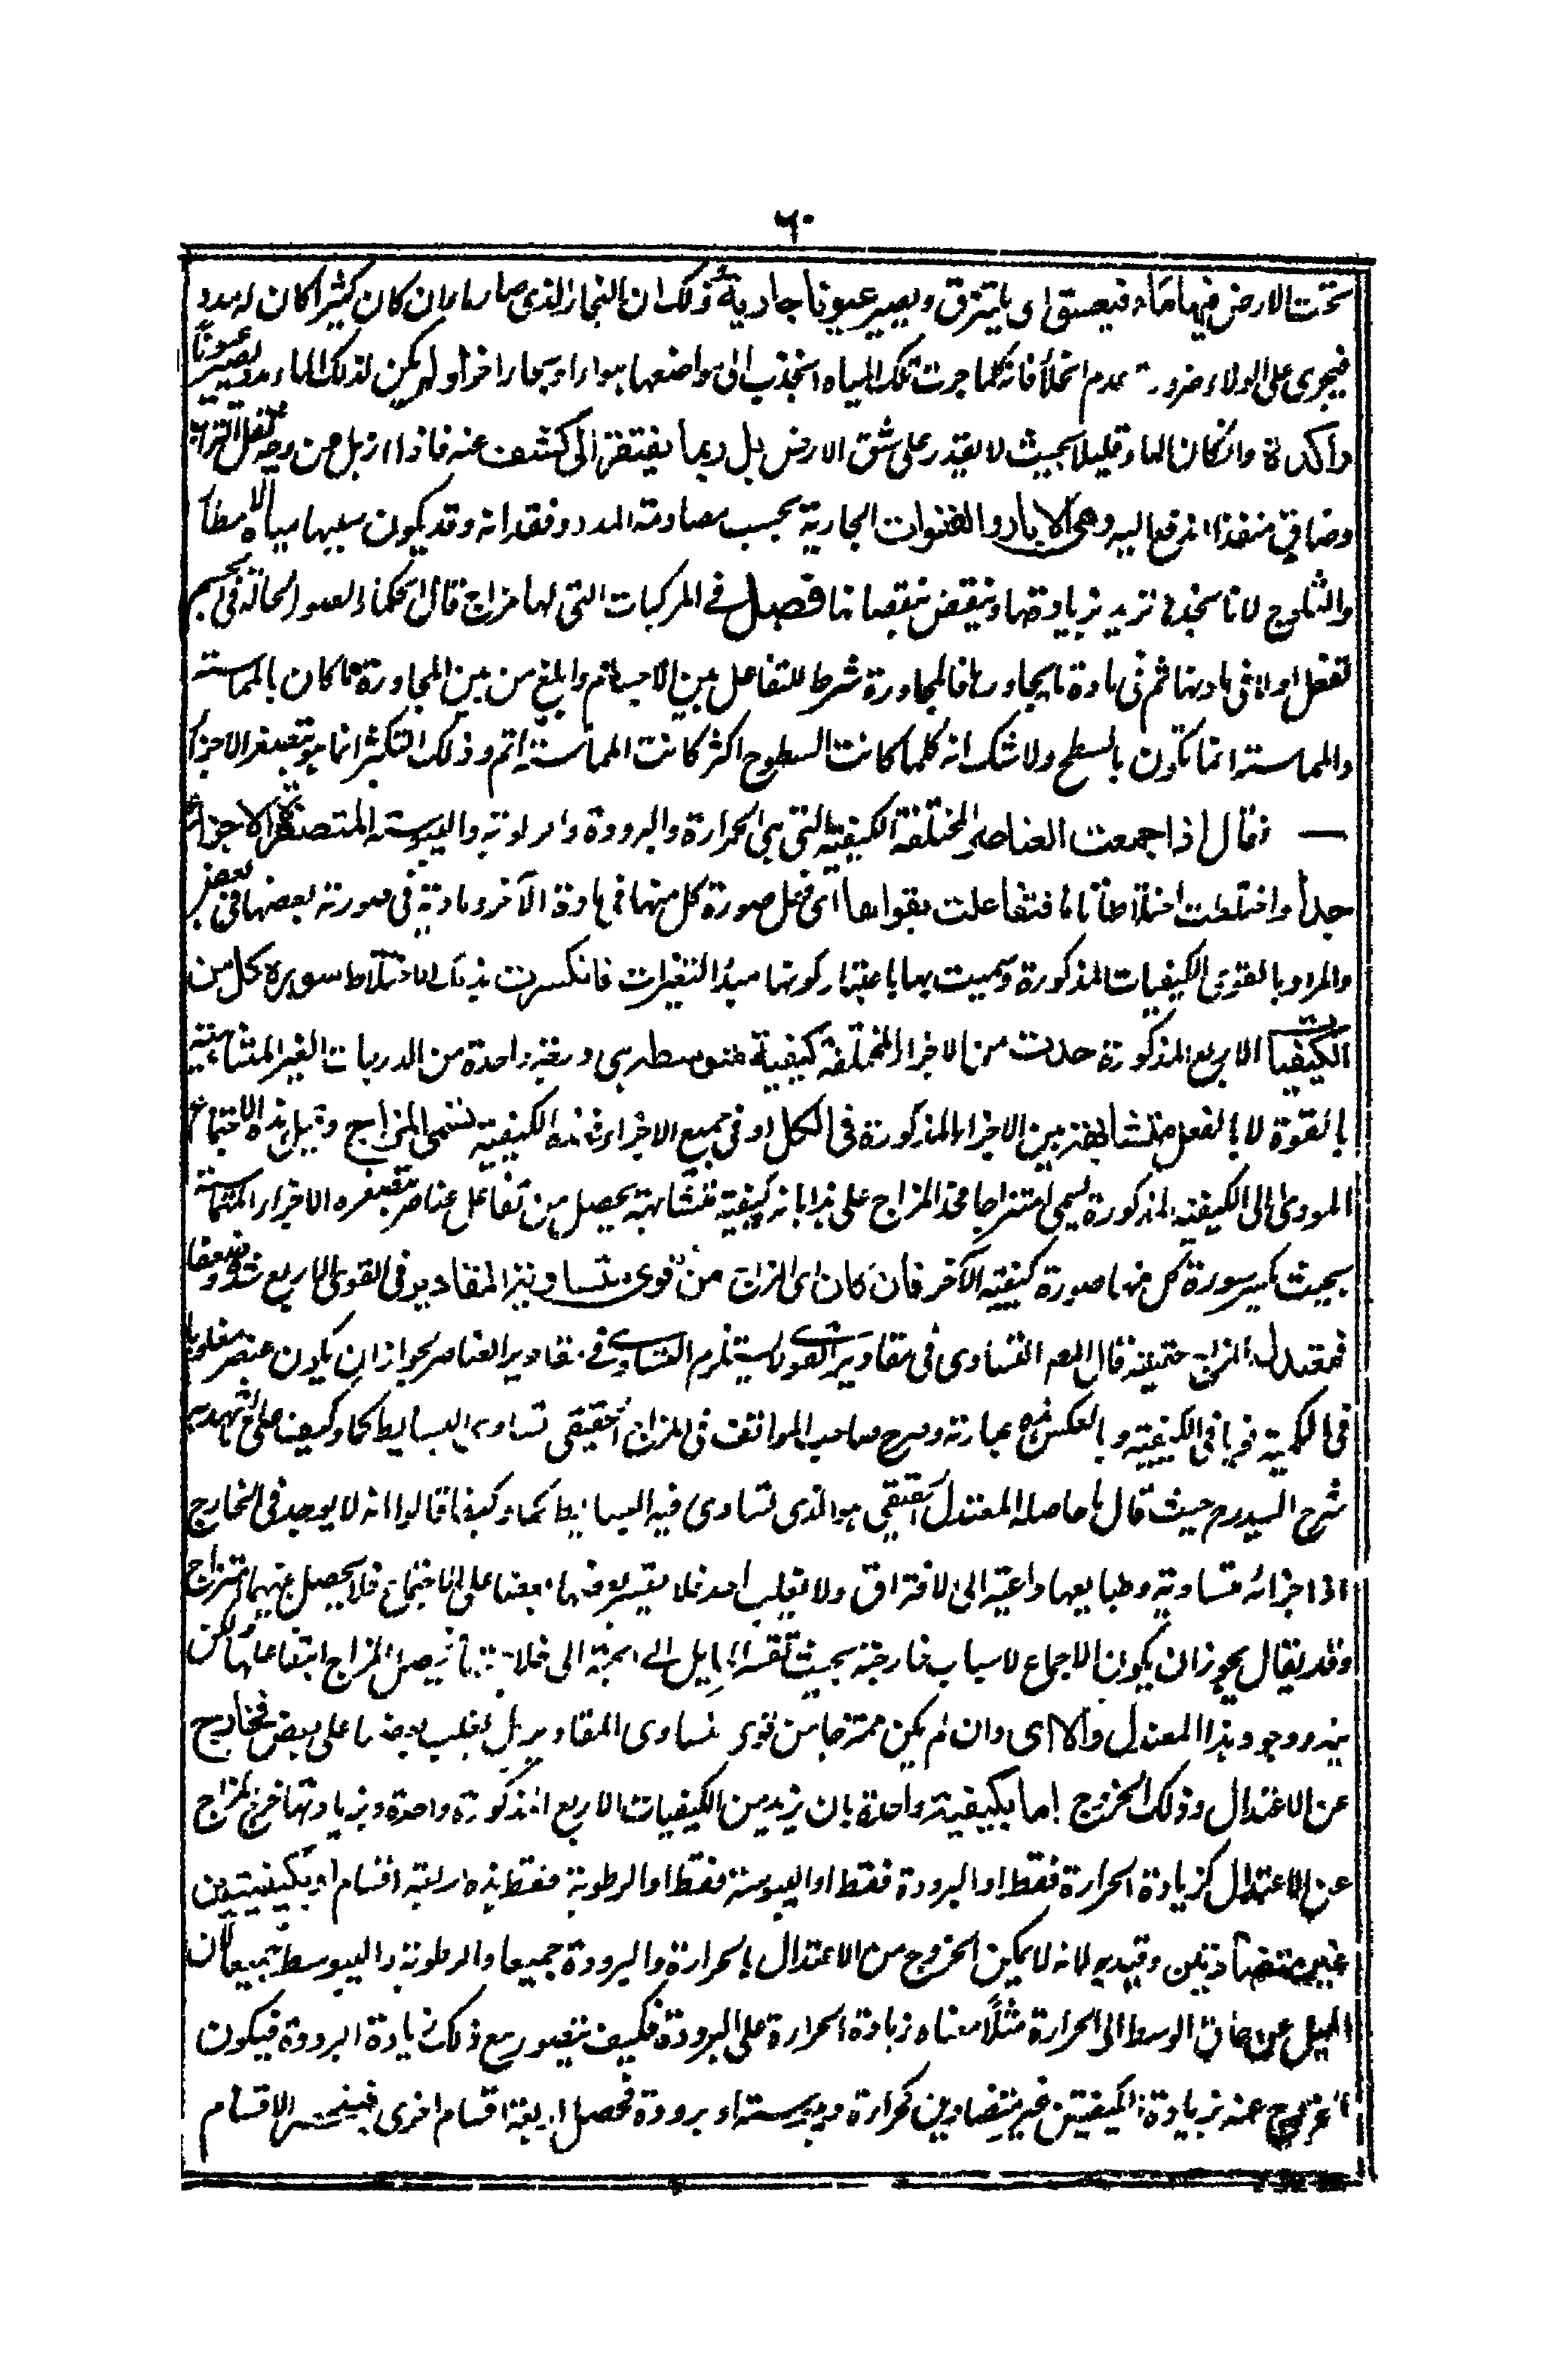 ٦٠
تحت الارض فيها ماء فينشق اى يتمزق ويصير عيونا جارية وذلك ان البخار الذى صار ماء بان كان كثيرا كان له مدد
فيجرى على الولاء ضرورة عدم الخلأ فانه كلما جرت تلك المياه انجذب الى مواضعها هواء او بخار اخر او لم يكن لذلك الماء مدد يصير عيونا
راكدة وان كان الماء قليلا بحيث لا يقدر على شق الارض بل ربما يفتقر الى كشف عنه فاذا ازيل من وجهه ثقل التراب
وصادف منفذا اندفع اليه وهى الابار والقنوات الجارية بحسب مصادمة المدد وفقدانه وقد يكون سببها مياه الامطار
والثلوج لانا نجدها تزيد بزيادتها وتنقص بنقصانها فصل فى المركبات التى لها مزاج قال الحكماء الصور الحالة فى الجسم
تفعل اولا فى مادتها ثم فى مادة ما يجاورها فالمجاورة شرط للتفاعل بين الاجسام وابلغ من بين المجاورة ما كان بالمماسة
والمماسة انما تكون بالسطح ولا شك انه كلما كانت السطوح اكثر كانت المماسة اتم وذلك التكثر انما هو بتصغر الاجزاء
فقال اذا اجمعت العناصر المختلفة الكيفية التى هى الحرارة والبرودة والرطوبة واليبوسة المتصغرة الاجزاء
جدا واختلطت اختلاطا تاما فتفاعلت بقواها اى فعل صورة كل منها فى مادة الآخر ومادية فى صورته بعضها فى بعض
والمراد بالقوى الكيفيات المذكورة وسميت بها باعتبار كونها مبدأ التغيرات فانكسرت بذلك الاختلاط سورة كل من
الكيفيات الاربع المذكورة حدث من الاجزاء المختلفة كيفية متوسطة هى درجة واحدة من الدرجات الغير المتناهية
بالقوة لا بالفعل متشابهة بين الاجزاء المذكورة فى الكل او فى جميع الاجزاء فهذه الكيفية تسمى المزاج وقبل هذه الاجتماع
المودى الى الكيفية المذكورة يسمى امتزاجا فحد المزاج على هذا بانه كيفية متشابهة يحصل من تفاعل عناصر متصغرة الاجزاء المتماسة
بحيث يكسر سورة كل منها صورة كيفية الآخر فان كان اى المزاج من قوى متساوية المقادير فى القوى الاربع شدة وضعفا
فمعتدل المزاج حقيقة قال المصـ التساوى فى مقادير القوى لا يستلزم التساوى فى مقادير العناصر لجواز ان يكون عنصر مغلوبا
فى الكمية قويا فى الكيفية وبالعكس هذه عبارته وصرح صاحب المواقف فى المزاج الحقيقى تساوى البسايط كما وكيفا على ما يشهد به
شرح السيد رح حيث قال ما حاصله المعتدل الحقيقى هو الذى تساوى فيه البسايط كما وكيفا قالوا انه لا يوجد فى الخارج
اذ اجزائه متساوية وطبايعها داعية الى الافتراق ولا يغلب احد فلا يقسر بعضها بعضا على الاجتماع فلا يحصل بينهما امتزاج
وقد يقال يجوز ان يكون الاجماع لاسباب خارجة بحيث يقسر المايل الى الجهة الى خلافها فيحصل المزاج بتفاعلها ولكن
يندر وجود هذا المعتدل والا اى وان لم يكن ممتزجا من قوى متساوى المقادير بل يغلب بعضها على بعض فخارج
عن الاعتدال وذلك الخروج اما بكيفية واحدة بان يزيد من الكيفيات الاربع المذكورة واحدة وبزيادتها خرج المزاج
عن الاعتدال كزيادة الحرارة فقط او البرودة فقط او اليبوسة فقط او الرطوبة فقط فهذه اربعة اقسام او بكيفيتين
غير متضادتين وقيد به لانه لا يمكن الخروج من الاعتدال بالحرارة والبرودة جميعا والرطوبة واليبوسة جميعا لان
الميل عن حاق الوسط الى الحرارة مثلاً معناه زيادة الحرارة على البرودة فكيف يتصور مع ذلك زيادة البرودة فيكون
الخروج عنه بزيادة الكيفيتين غير متضادين كحرارة ويبوسة او برودة فحصل اربعة اقسام اخرى فينحصر الاقسام